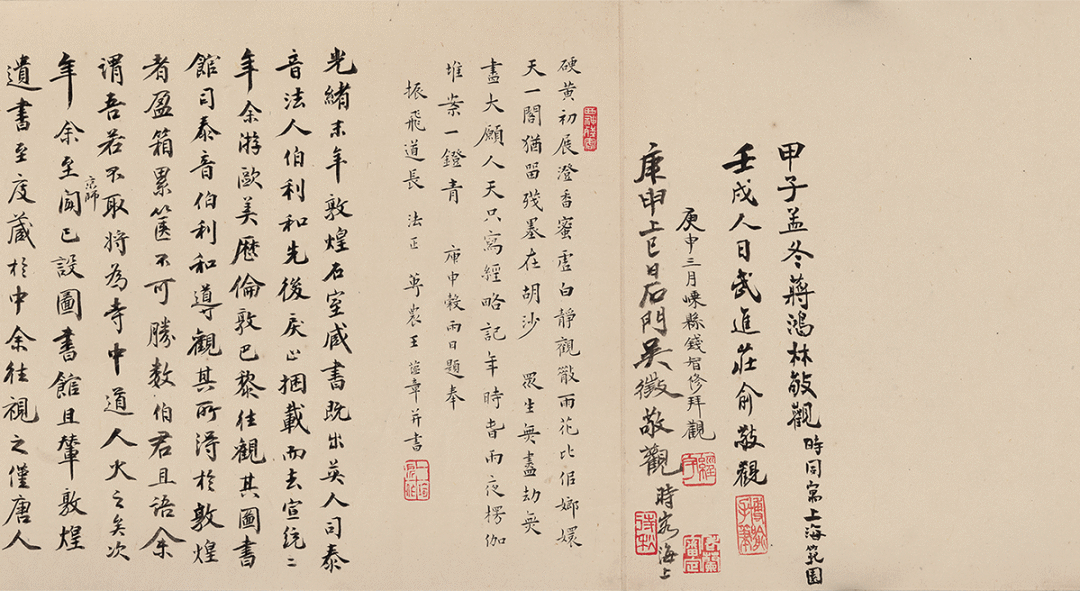 甲子孟冬蔣鴻林敬觀時同寓上海範園
壬戌人日武進莊俞敬觀
庚申三月嵊縣錢智修拜觀
庚申上巳日石門吳徵敬觀時客海上
硬黃初展澄香蜜虛白靜觀散雨花比佀嫏嬛
天一閣猶留殘墨在胡沙　眾生無盡劫無
盡大願人天只寫經略記年時昔雨夜楞伽
堆案一鐙青　庚申穀雨日題奉
振飛道長　法正　蓴農王蘊章并書
光緒末年敦煌石室臧書既出英人司泰
音法人伯利和先後戾止捆載而去宣統二
年余游歐美歷倫敦巴黎往觀其圖書
館司泰音伯利和導觀其所得於敦煌
者盈箱累篋不可勝數伯君且語余
謂吾若不取將為寺中道人火之矣次
年余至京師聞已設圖書館且輦敦煌
遺書至庋藏於中余往視之僅唐人